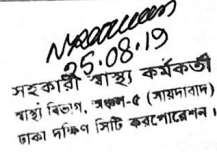 25.08.19
সহকারী স্বাস্থ্য কর্মকর্তা
স্বাস্থ্য বিভাগ, অঞ্চল-৫ (সায়দাবাদ)
ঢাকা দক্ষিণ সিটি কর্পোরেশন।